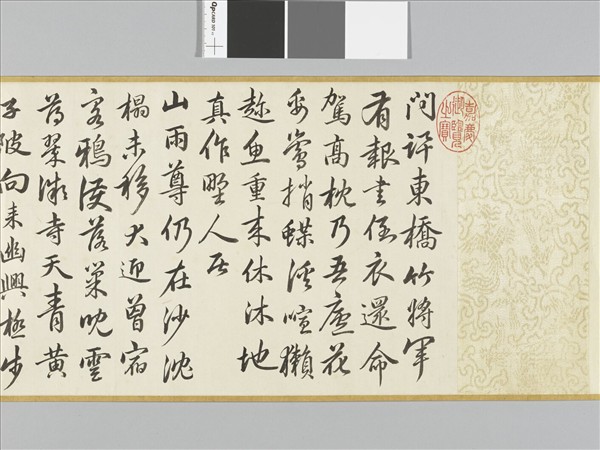 嘉慶御覽之寶
問訊東橋竹將軍
有報書倒衣還命
駕高枕乃吾廬花
妥鶯捎蝶溪喧獺
趂魚重來休沐地
真作野人居
山雨尊仍在沙沈
榻未移犬迎曾宿
客鴉護落巢兒雲
薄翠微寺天青黃
子陂向來幽興極步